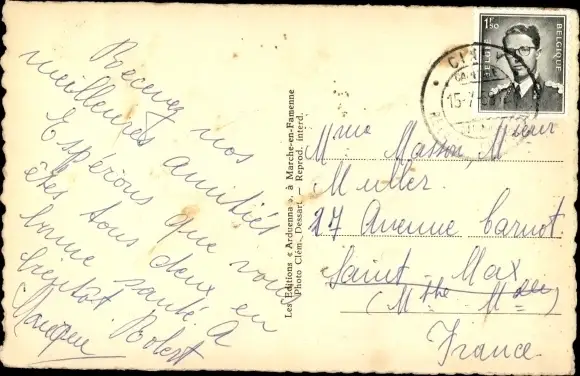 Recevez nos
meilleures amitiés
Espérons que vous
êtes tous deux en
bonne santé A
bientôt Robert
Les Editions « Arduenna », à Marche-en-Famenne
Photo Clém. Dessart — Reprod. interd.
1F50
BELGIQUE
BELGIE
15-7
Mme Masson, Mieur
Muller
27 Avenue Carnot
Saint Max
(Mthe Mlle)
France